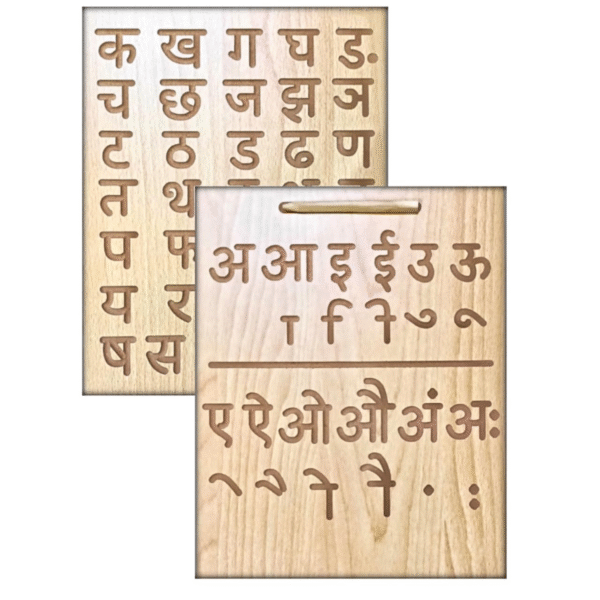 क ख ग घ ङ
च छ ज झ ञ
ट ठ ड ढ ण
त थ
प फ
य र
ष स
अ आ इ ई उ ऊ
ा ि ी ु ू
ए ऐ ओ औ अं अः
े ै ो ौ ं ः